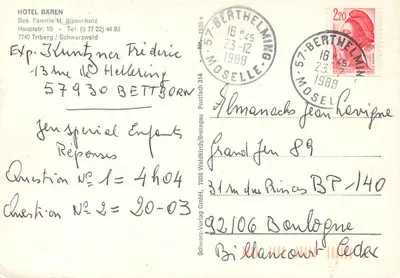 HOTEL BÄREN
Bes. Familie H.
Hauptstr. 10 - Tel. (0 77 22) 44 93
7740 Triberg / Schwarzwald
Exp. Kuntzner Fréderic
13 rue de Hellering
57930 BETTBORN
Jeu spécial Enfants
Réponses
Question N° 1 = 4h04
Question N° 2 = 20-03
Schwarz-Verlag GmbH, 7808 Waldkirch/Breisgau Postfach 314
57-BERTHELMING
16H45
23-12
1988
MOSELLE
57-BERTHELMING
16H45
23-12
1988
MOSELLE
2,20
Almanachs Jean Lavigne
Grand Jeu 89
31 rue des Princes BP-140
92106 Boulogne
Billancourt Cedex